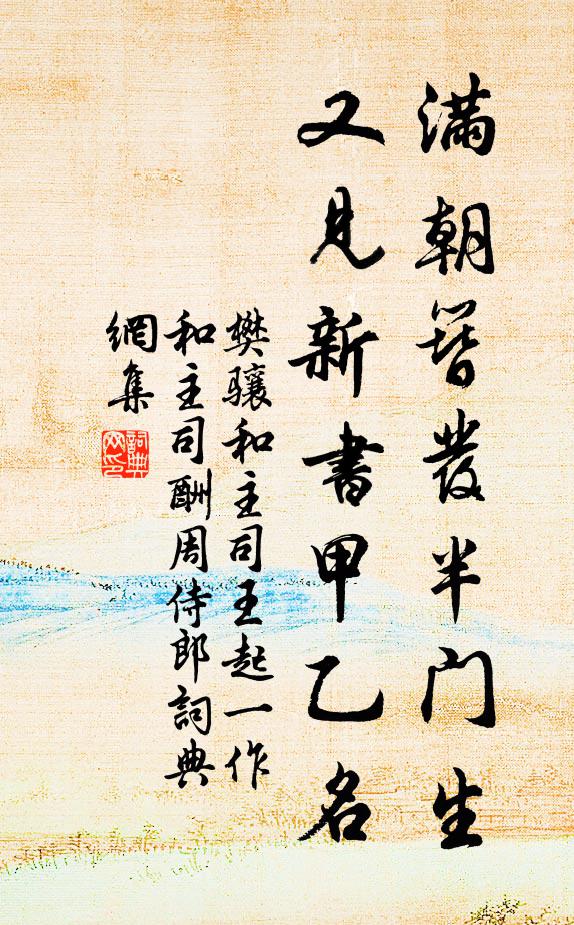 滿朝簪發半门生
又見新書甲乙名
樊骧和主司王起一作
和主司酬周侍郎詞典
網集
詞典
网印